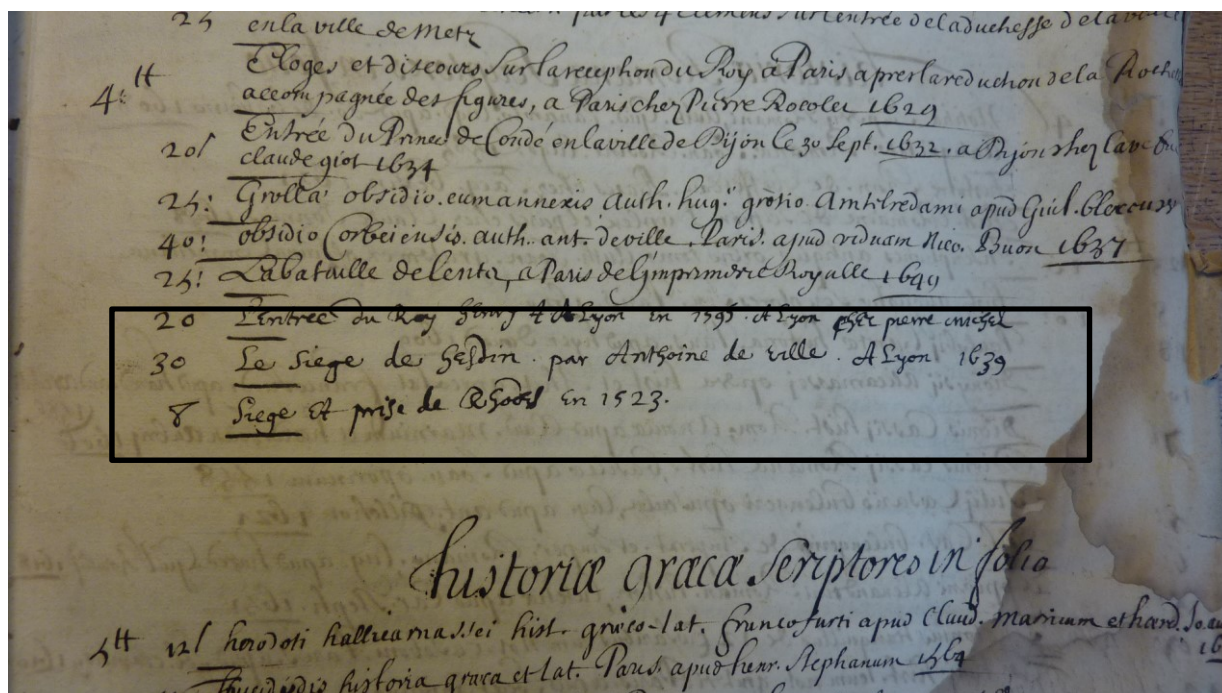 25 en la ville de Metz
4:tt Eloges et discours sur la reception du Roy a Paris apres la reduction de la Roche
accompagnée des figures, a Paris chez Pierre Rocolet 1629
20s Entrée du Prince de Condé en la ville de Dijon le 30 Sept. 1632. a Dijon chez la ve de
claude giot 1634
25: Grolla obsidio. cum annexis auth. hug.° grotio. Amstelredami apud Guil.
40: obsidio Corbeiensis. auth. ant. de ville. Paris. apud viduam Nico. Buon 1637
25: La bataille de lentz, a Paris de l'imprimerie Royalle 1649
20 L'entrée du Roy Henry 4 a Lyon en 1595. A Lyon chez pierre michel
30 Le siege de Hesdin. par Anthoine de ville. A Lyon 1639
8 Siege et prise de Rhodes en 1523.
historiæ græcæ Scriptores in folio
5tt 12s herodoti hallicarnassei hist. græco-lat. francofurti apud Claud. marnium et hæred. Jo. au
Thucididis historia græca et lat. Paris. apud henr. Stephanum 1564